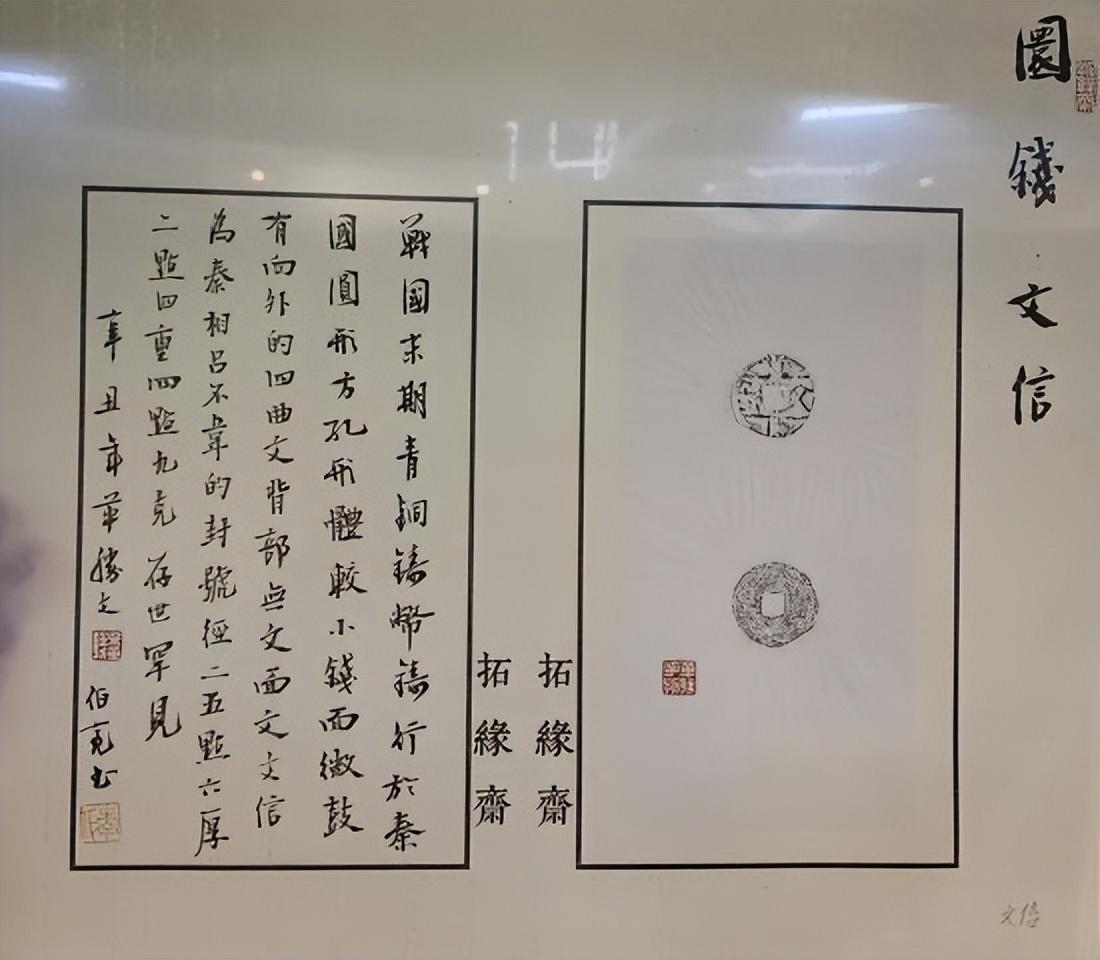 圜錢文信
拓緣齋
拓緣齋
戰國末期青銅鑄幣鑄行於秦
國圓形方孔形體較小錢面微鼓
有向外的四曲文背部無文面文文信
為秦相呂不韋的封號徑二五點六厚
二點四重四點九克存世罕見
辛丑年華勝文
伯亮书
文信